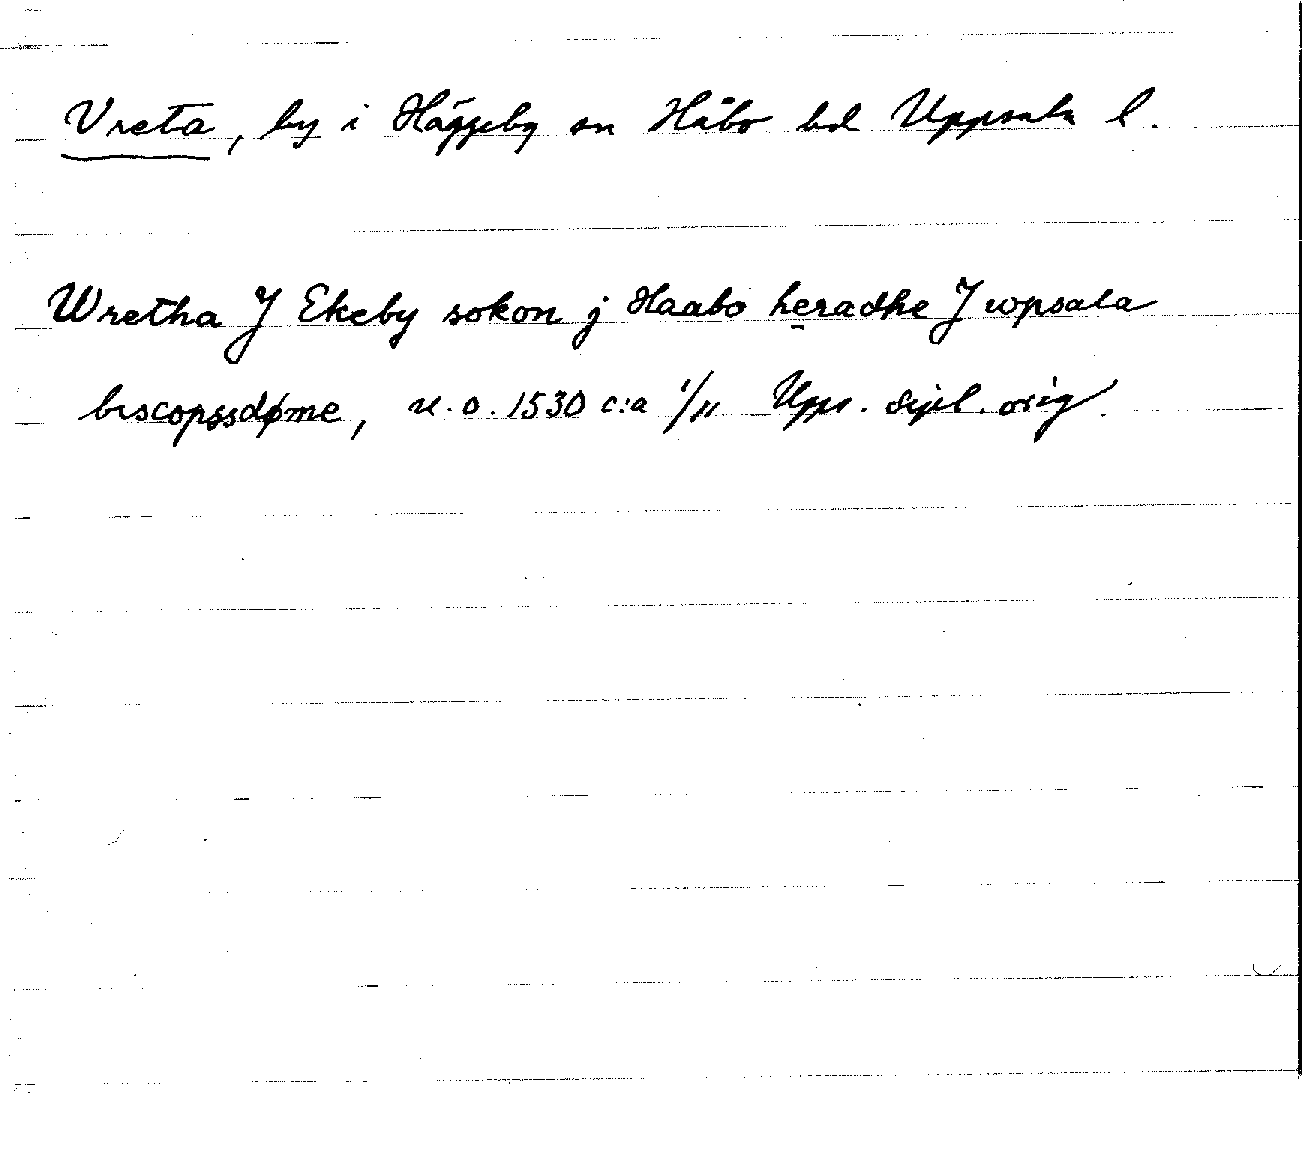 Vreta, by i Häggeby sn Håbo hd Uppsala l.
Wretha J Ekeby sokon j Haabo heradhe J wpsala
biscopssdøme, u.o. 1530 c:a 1/11 Upps. dipl. orig.